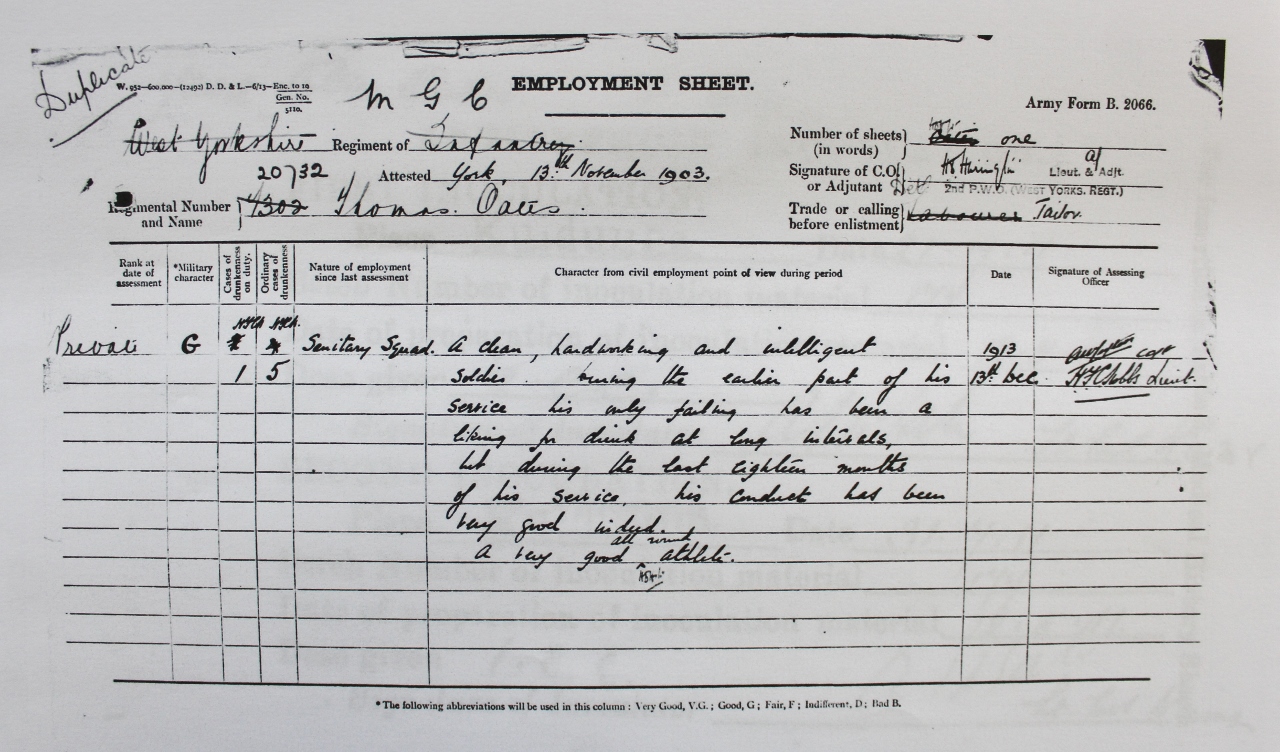 Duplicate
W. 952—600,000—(12492) D. D. & L.—6/13—Enc. to 10
Gen. No.
5110.
M G C
EMPLOYMENT SHEET.
Army Form B. 2066.
West Yorkshire Regiment of Infantry
Number of sheets (in words) one
20732
Attested York, 13th November 1903.
Signature of C.O. or Adjutant Lieut. & Adjt.
2nd P.W.O. (WEST YORKS. REGT.)
Regimental Number and Name 4302 Thomas Oates.
Trade or calling before enlistment Labourer Tailor.
Rank at date of assessment
*Military character
Cases of drunkenness on duty.
Ordinary cases of drunkenness
Nature of employment since last assessment
Character from civil employment point of view during period
Date
Signature of Assessing Officer
Private G Sanitary Squad. A clean, hardworking and intelligent 1913
1 5 soldier. During the earlier part of his 13th Dec. Lieut.
service his only failing has been a
liking for drink at long intervals,
but during the last eighteen months
of his service, his conduct has been
very good indeed.
A very good all round athlete.
*The following abbreviations will be used in this column : Very Good, V.G. ; Good, G ; Fair, F ; Indifferent, D ; Bad B.